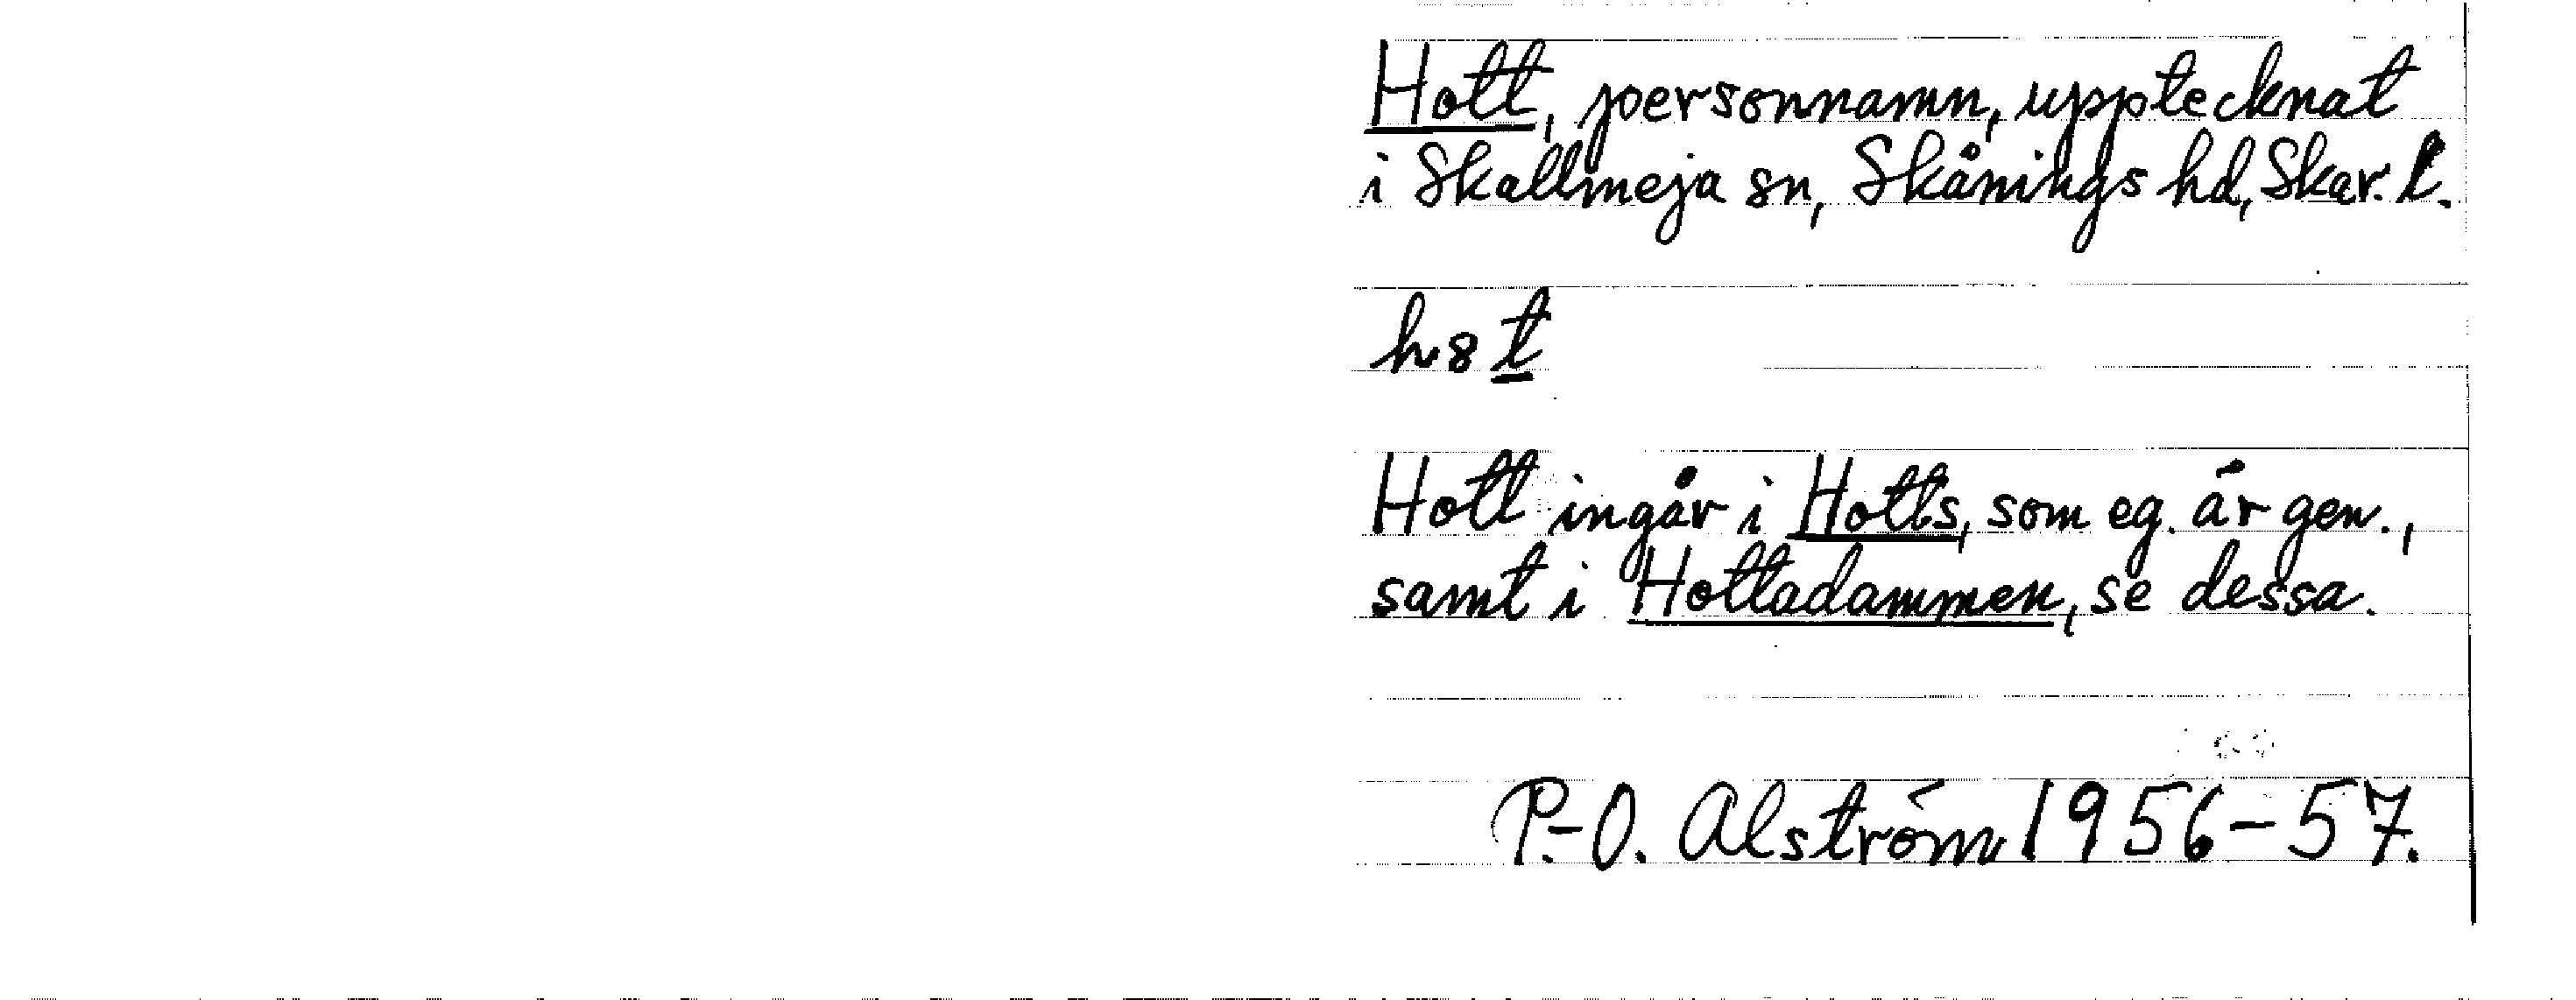 Hott, personnamn, upptecknat
i Skallmeja sn, Skånings hd, Skar. l.
h8t
Hott ingår i Hotts, som eg. är gen.,
samt i Hottadammen, se dessa.
P.-O. Alström 1956-57.